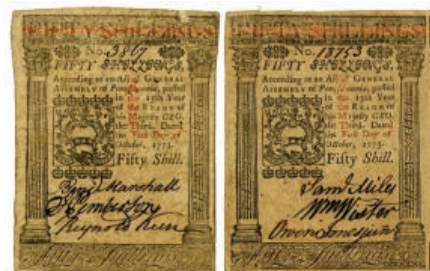 No. 3867
FIFTY SHILLINGS.
According to an Act of GENERAL
ASSEMBLY of Pennsylvania, passed
in the 13th Year
of the REIGN of
his Majesty GEO.
the Third. Dated
the First Day of
October, 1773.
Fifty Shill.
Marshall
Reynold Keen
No. 18753
FIFTY SHILLINGS.
According to an Act of GENERAL
ASSEMBLY of Pennsylvania, passed
in the 13th Year
of the REIGN of
his Majesty GEO.
the Third. Dated
the First Day of
October, 1773.
Fifty Shill.
Saml Miles
Wm Wister
Owen Jones Junr